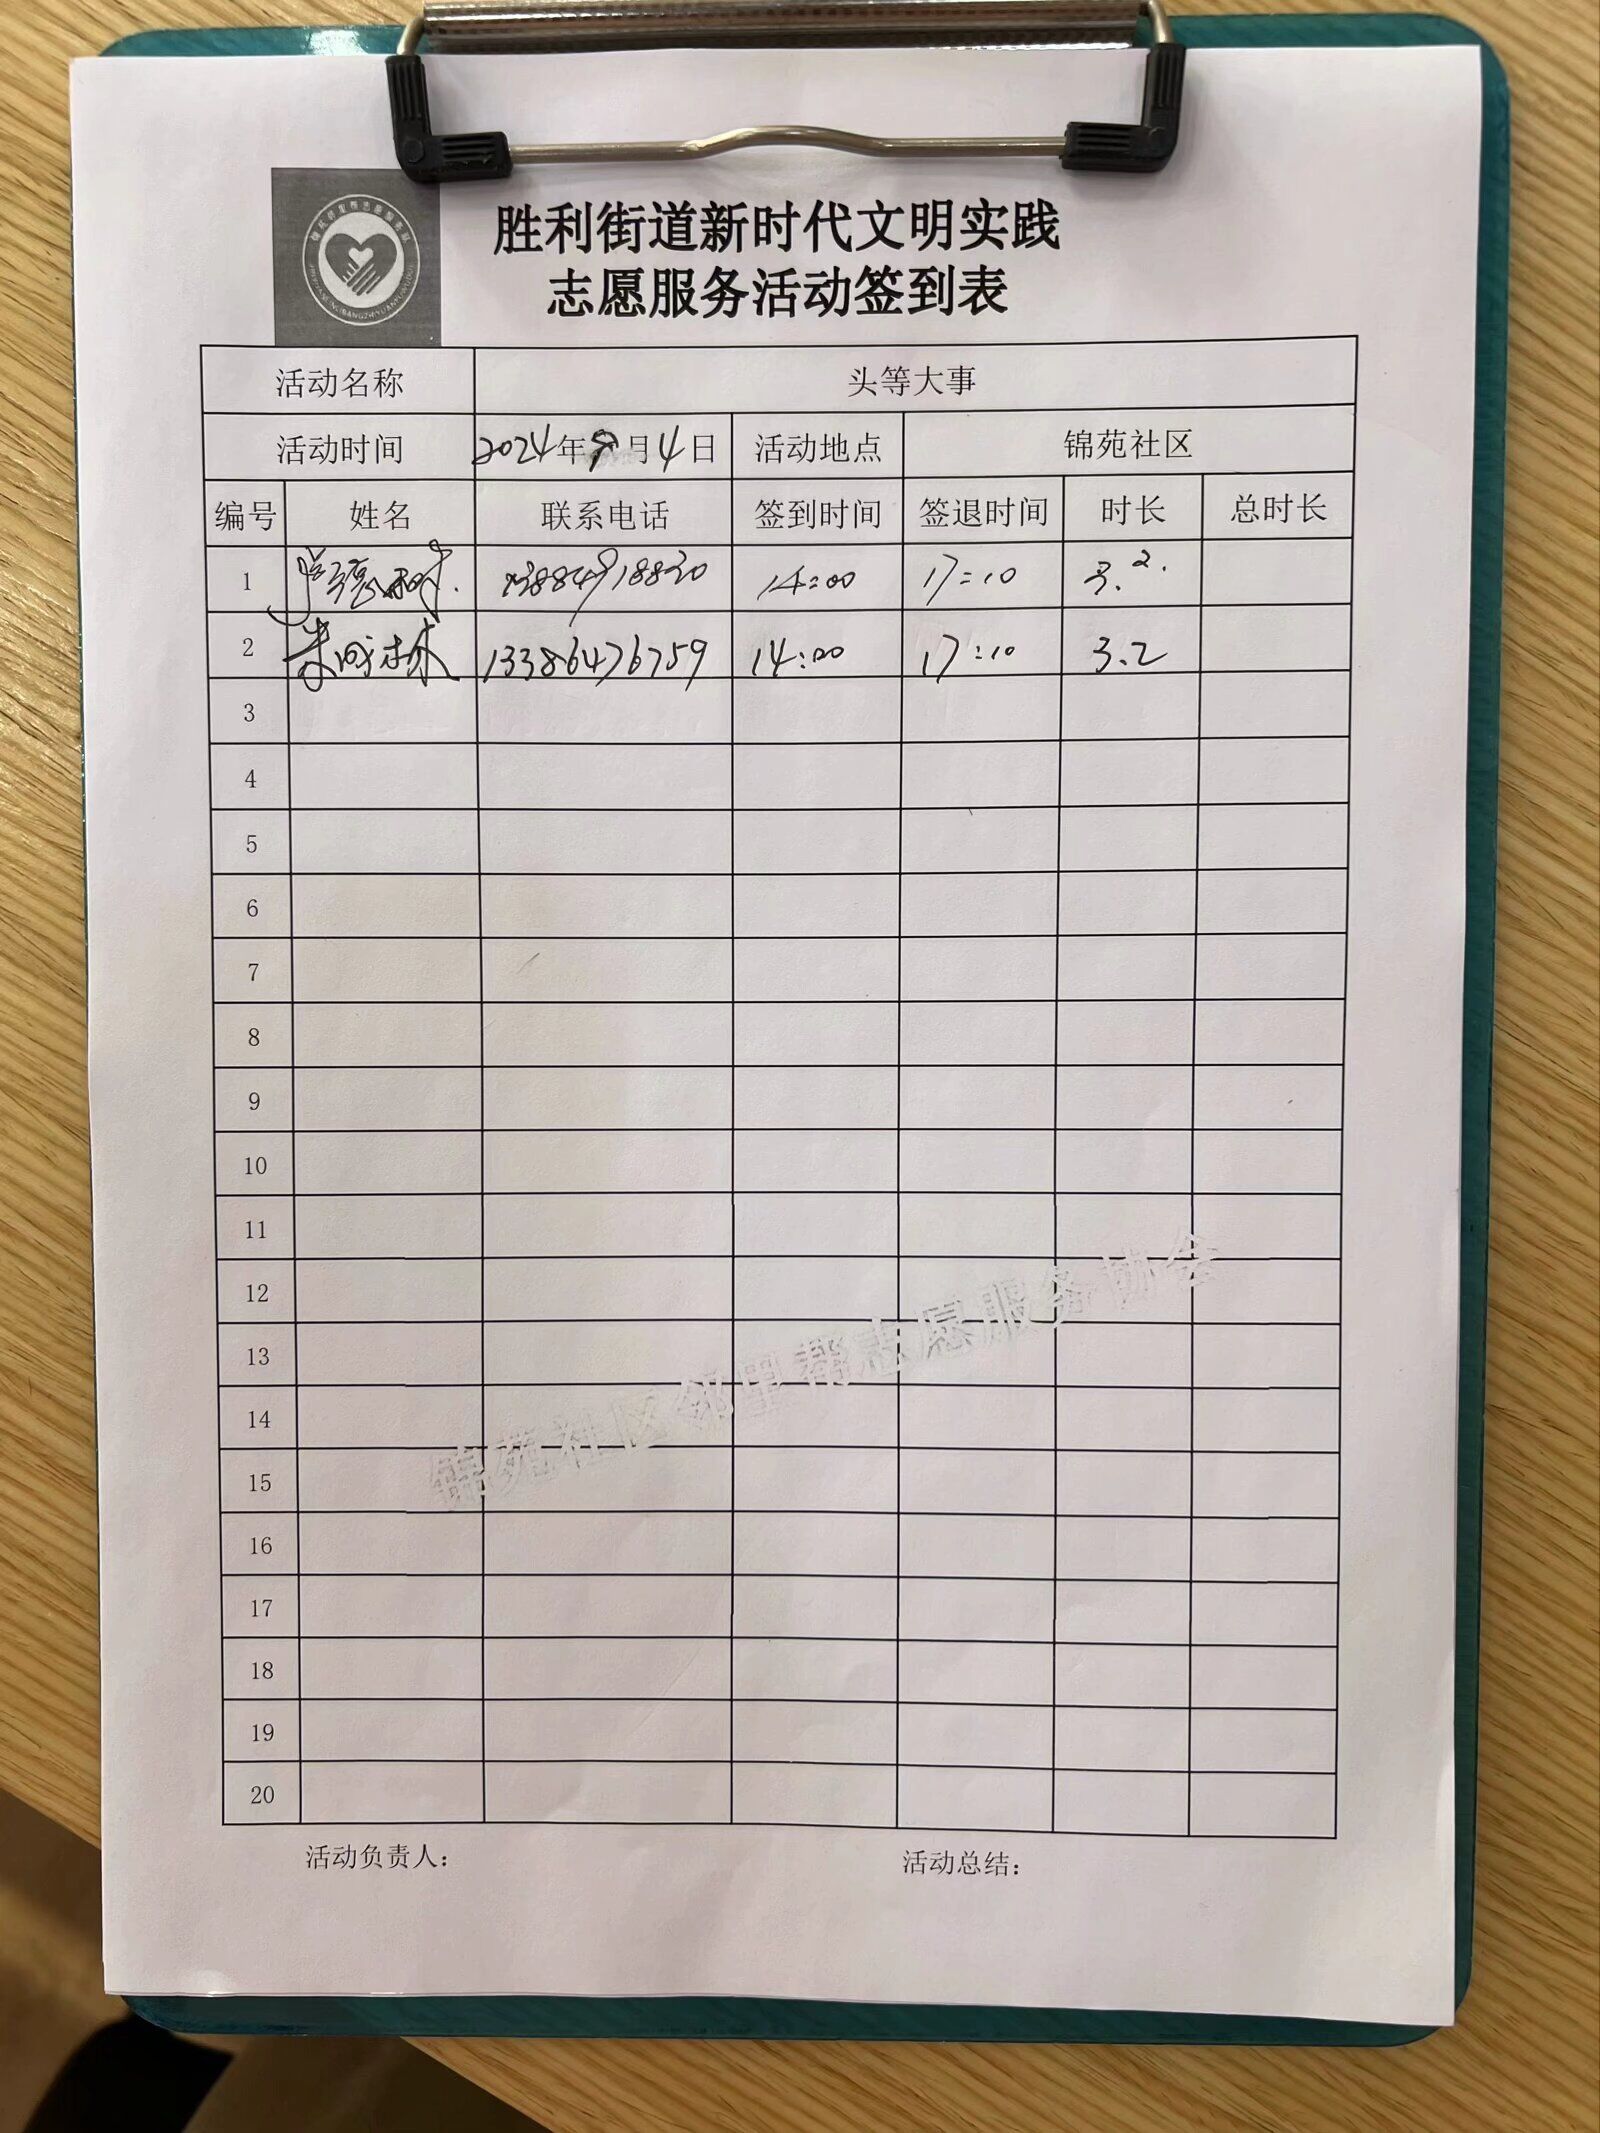 锦苑邻里帮志愿服务队
胜利街道新时代文明实践
志愿服务活动签到表
活动名称 头等大事
活动时间 2024年9月4日 活动地点 锦苑社区
编号 姓名 联系电话 签到时间 签退时间 时长 总时长
1 13884918830 14:00 17:10 3.2.
2 13386476759 14:00 17:10 3.2
3
4
5
6
7
8
9
10
11
12
13
14
15
16
17
18
19
20
锦苑社区邻里帮志愿服务协会
活动负责人： 活动总结：